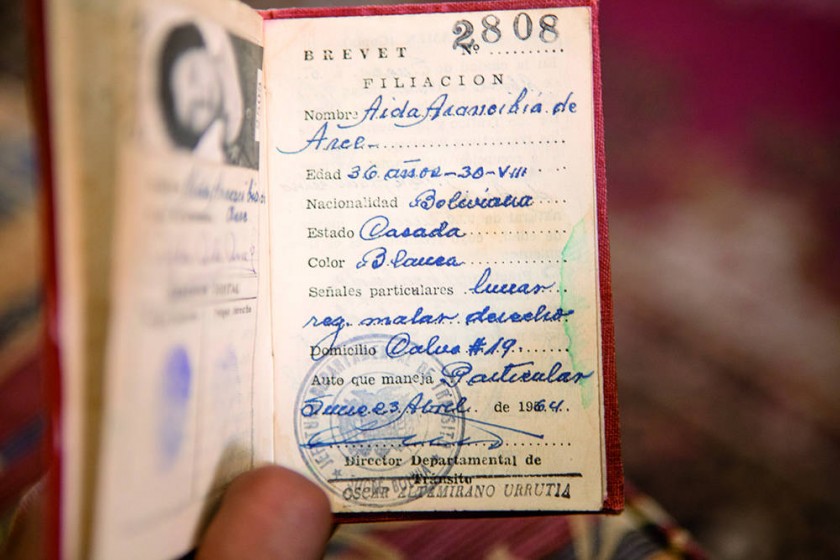 2808
BREVET Nº
FILIACION
Nombre Aida Arancibia de
Arce
Edad 36 años-30-VIII
Nacionalidad Boliviana
Estado Casada
Color Blanca
Señales particulares lunar
reg. malar derecho
Domicilio Calvo #19.
Auto que maneja Particular
Sucre 23 Abril de 1964.
Director Departamental de
Tránsito
OSCAR ALTAMIRANO URRUTIA
JEFATURA DEPARTAMENTAL DE TRANSITO
SUCRE BOLIVIA